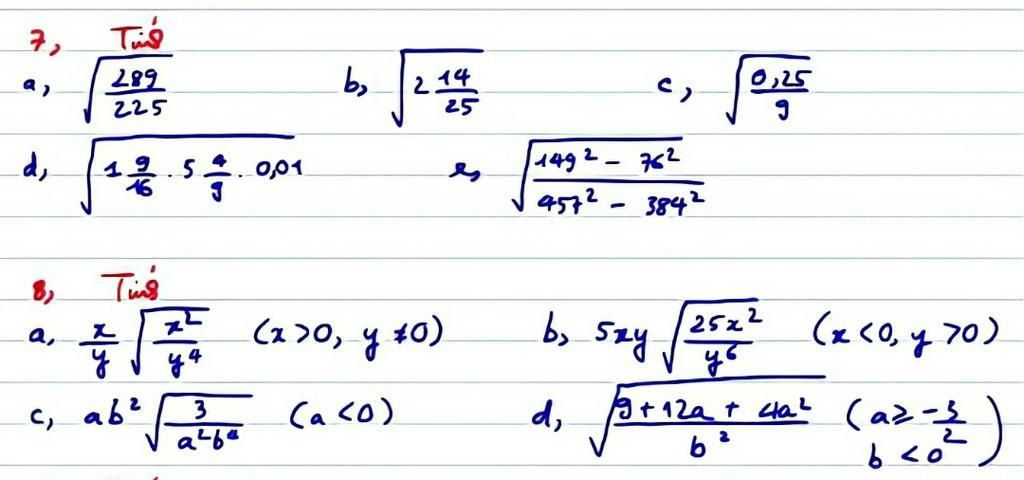 7, Tính
a, √(289/225) b, √(2 14/25) c, √(0,25/9)
d, √(1 9/16 . 5 4/9 . 0,01) e, √((149² - 76²)/(457² - 384²))
8, Tính
a, x/y √(x²/y⁴) (x>0, y≠0) b, 5xy √(25x²/y⁶) (x<0, y>0)
c, ab² √(3/(a²b⁴)) (a<0) d, √((9+12a+4a²)/b²) (a ≥ -3/2
b < 0)